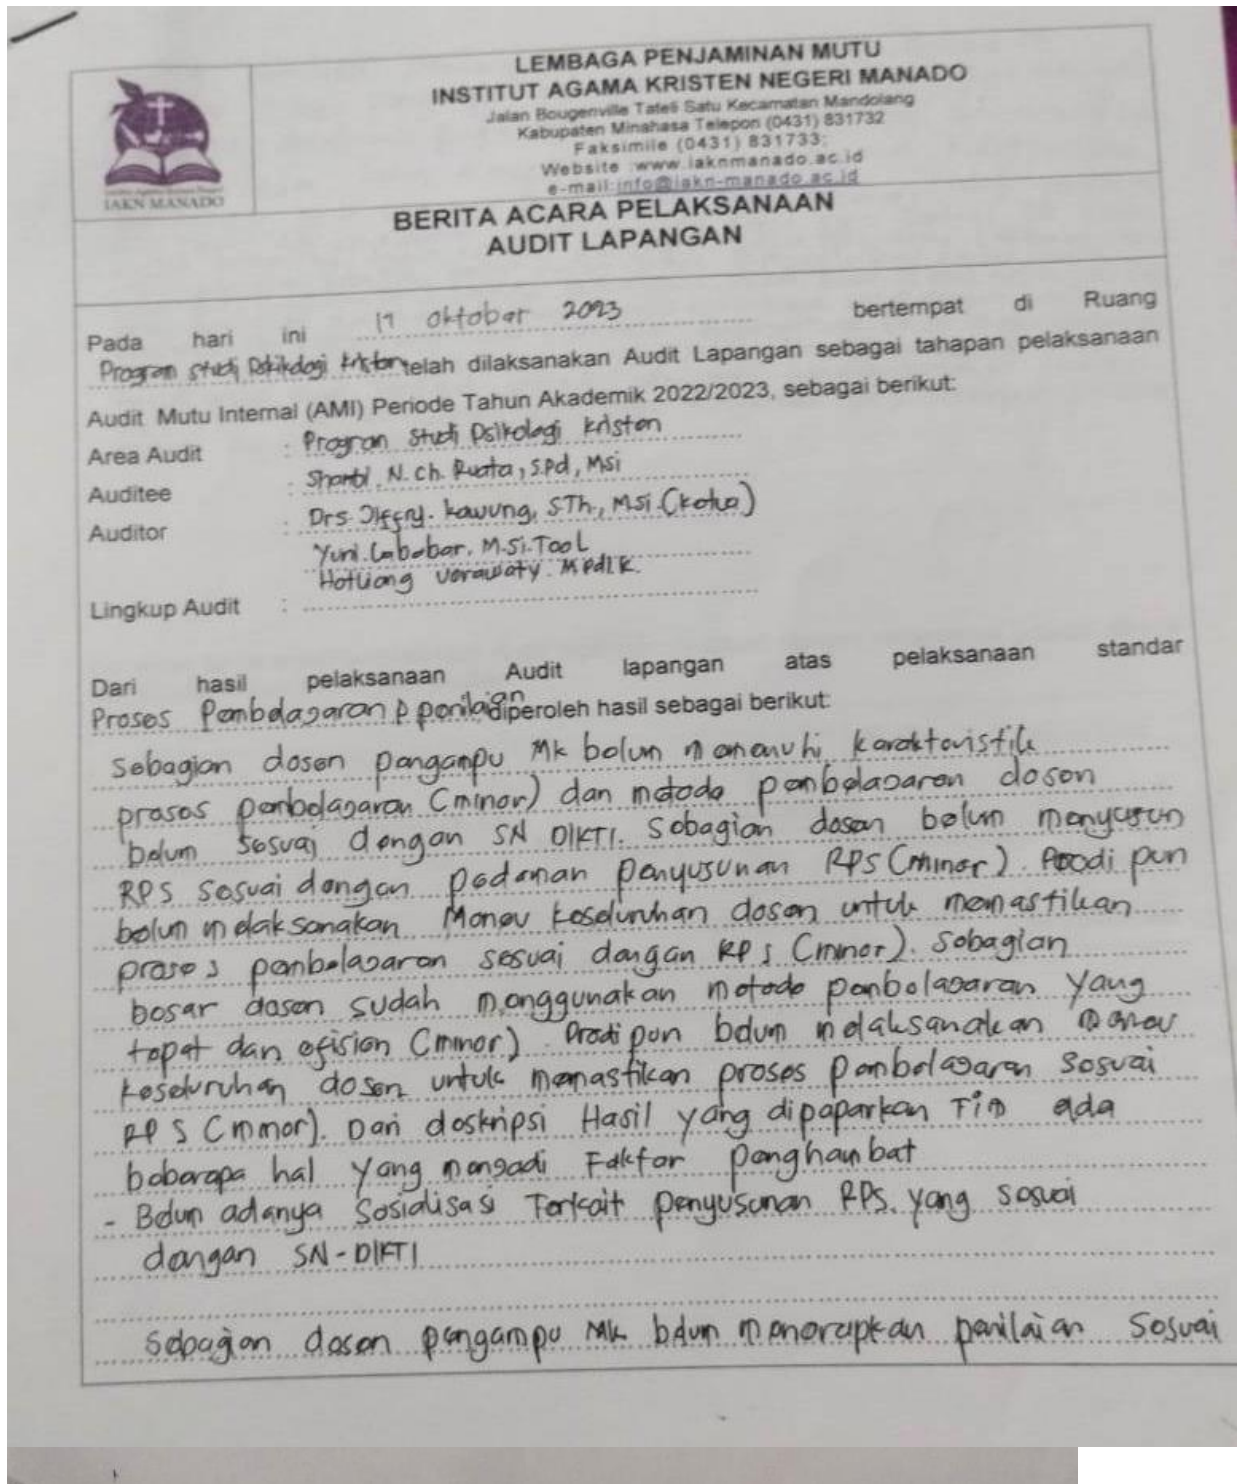 LEMBAGA PENJAMINAN MUTU
INSTITUT AGAMA KRISTEN NEGERI MANADO
Jalan Bougenville Tateli Satu Kecamatan Mandolang
Kabupaten Minahasa Telepon (0431) 831732
Faksimile (0431) 831733;
Website :www.iaknmanado.ac.id
e-mail:info@iakn-manado.ac.id
IAKN MANADO
BERITA ACARA PELAKSANAAN
AUDIT LAPANGAN
Pada hari ini 17 Oktober 2023 bertempat di Ruang
Program studi Psikologi Kristen telah dilaksanakan Audit Lapangan sebagai tahapan pelaksanaan
Audit Mutu Internal (AMI) Periode Tahun Akademik 2022/2023, sebagai berikut:
Area Audit : Program Studi Psikologi Kristen
Auditee : N. Ch. Ruata, S.Pd, Msi
Auditor : Drs. Kawung, STh, Msi (Ketua)
Yuni. M.Si.
Hotliong Verawaty.
Lingkup Audit :
Dari hasil pelaksanaan Audit lapangan atas pelaksanaan standar
Proses Pembelajaran & penilaian diperoleh hasil sebagai berikut:
Sebagian dosen pengampu MK belum memenuhi karakteristik
proses pembelajaran (minor) dan metode pembelajaran dosen
belum sesuai dengan SN DIKTI. Sebagian dosen belum menyusun
RPS sesuai dengan pedoman penyusunan RPS (minor). Prodi pun
belum melaksanakan Monev keseluruhan dosen untuk memastikan
proses pembelajaran sesuai dengan RPS (minor). Sebagian
besar dosen sudah menggunakan metode pembelajaran yang
tepat dan efisien (minor). Prodi pun belum melaksanakan monev
keseluruhan dosen untuk memastikan proses pembelajaran sesuai
RPS (minor). Dari deskripsi Hasil yang dipaparkan Tim ada
beberapa hal yang menjadi Faktor penghambat
- Belum adanya Sosialisasi Terkait penyusunan RPS. yang sesuai
dengan SN-DIKTI
sebagian dosen pengampu MK belum menerapkan penilaian sesuai